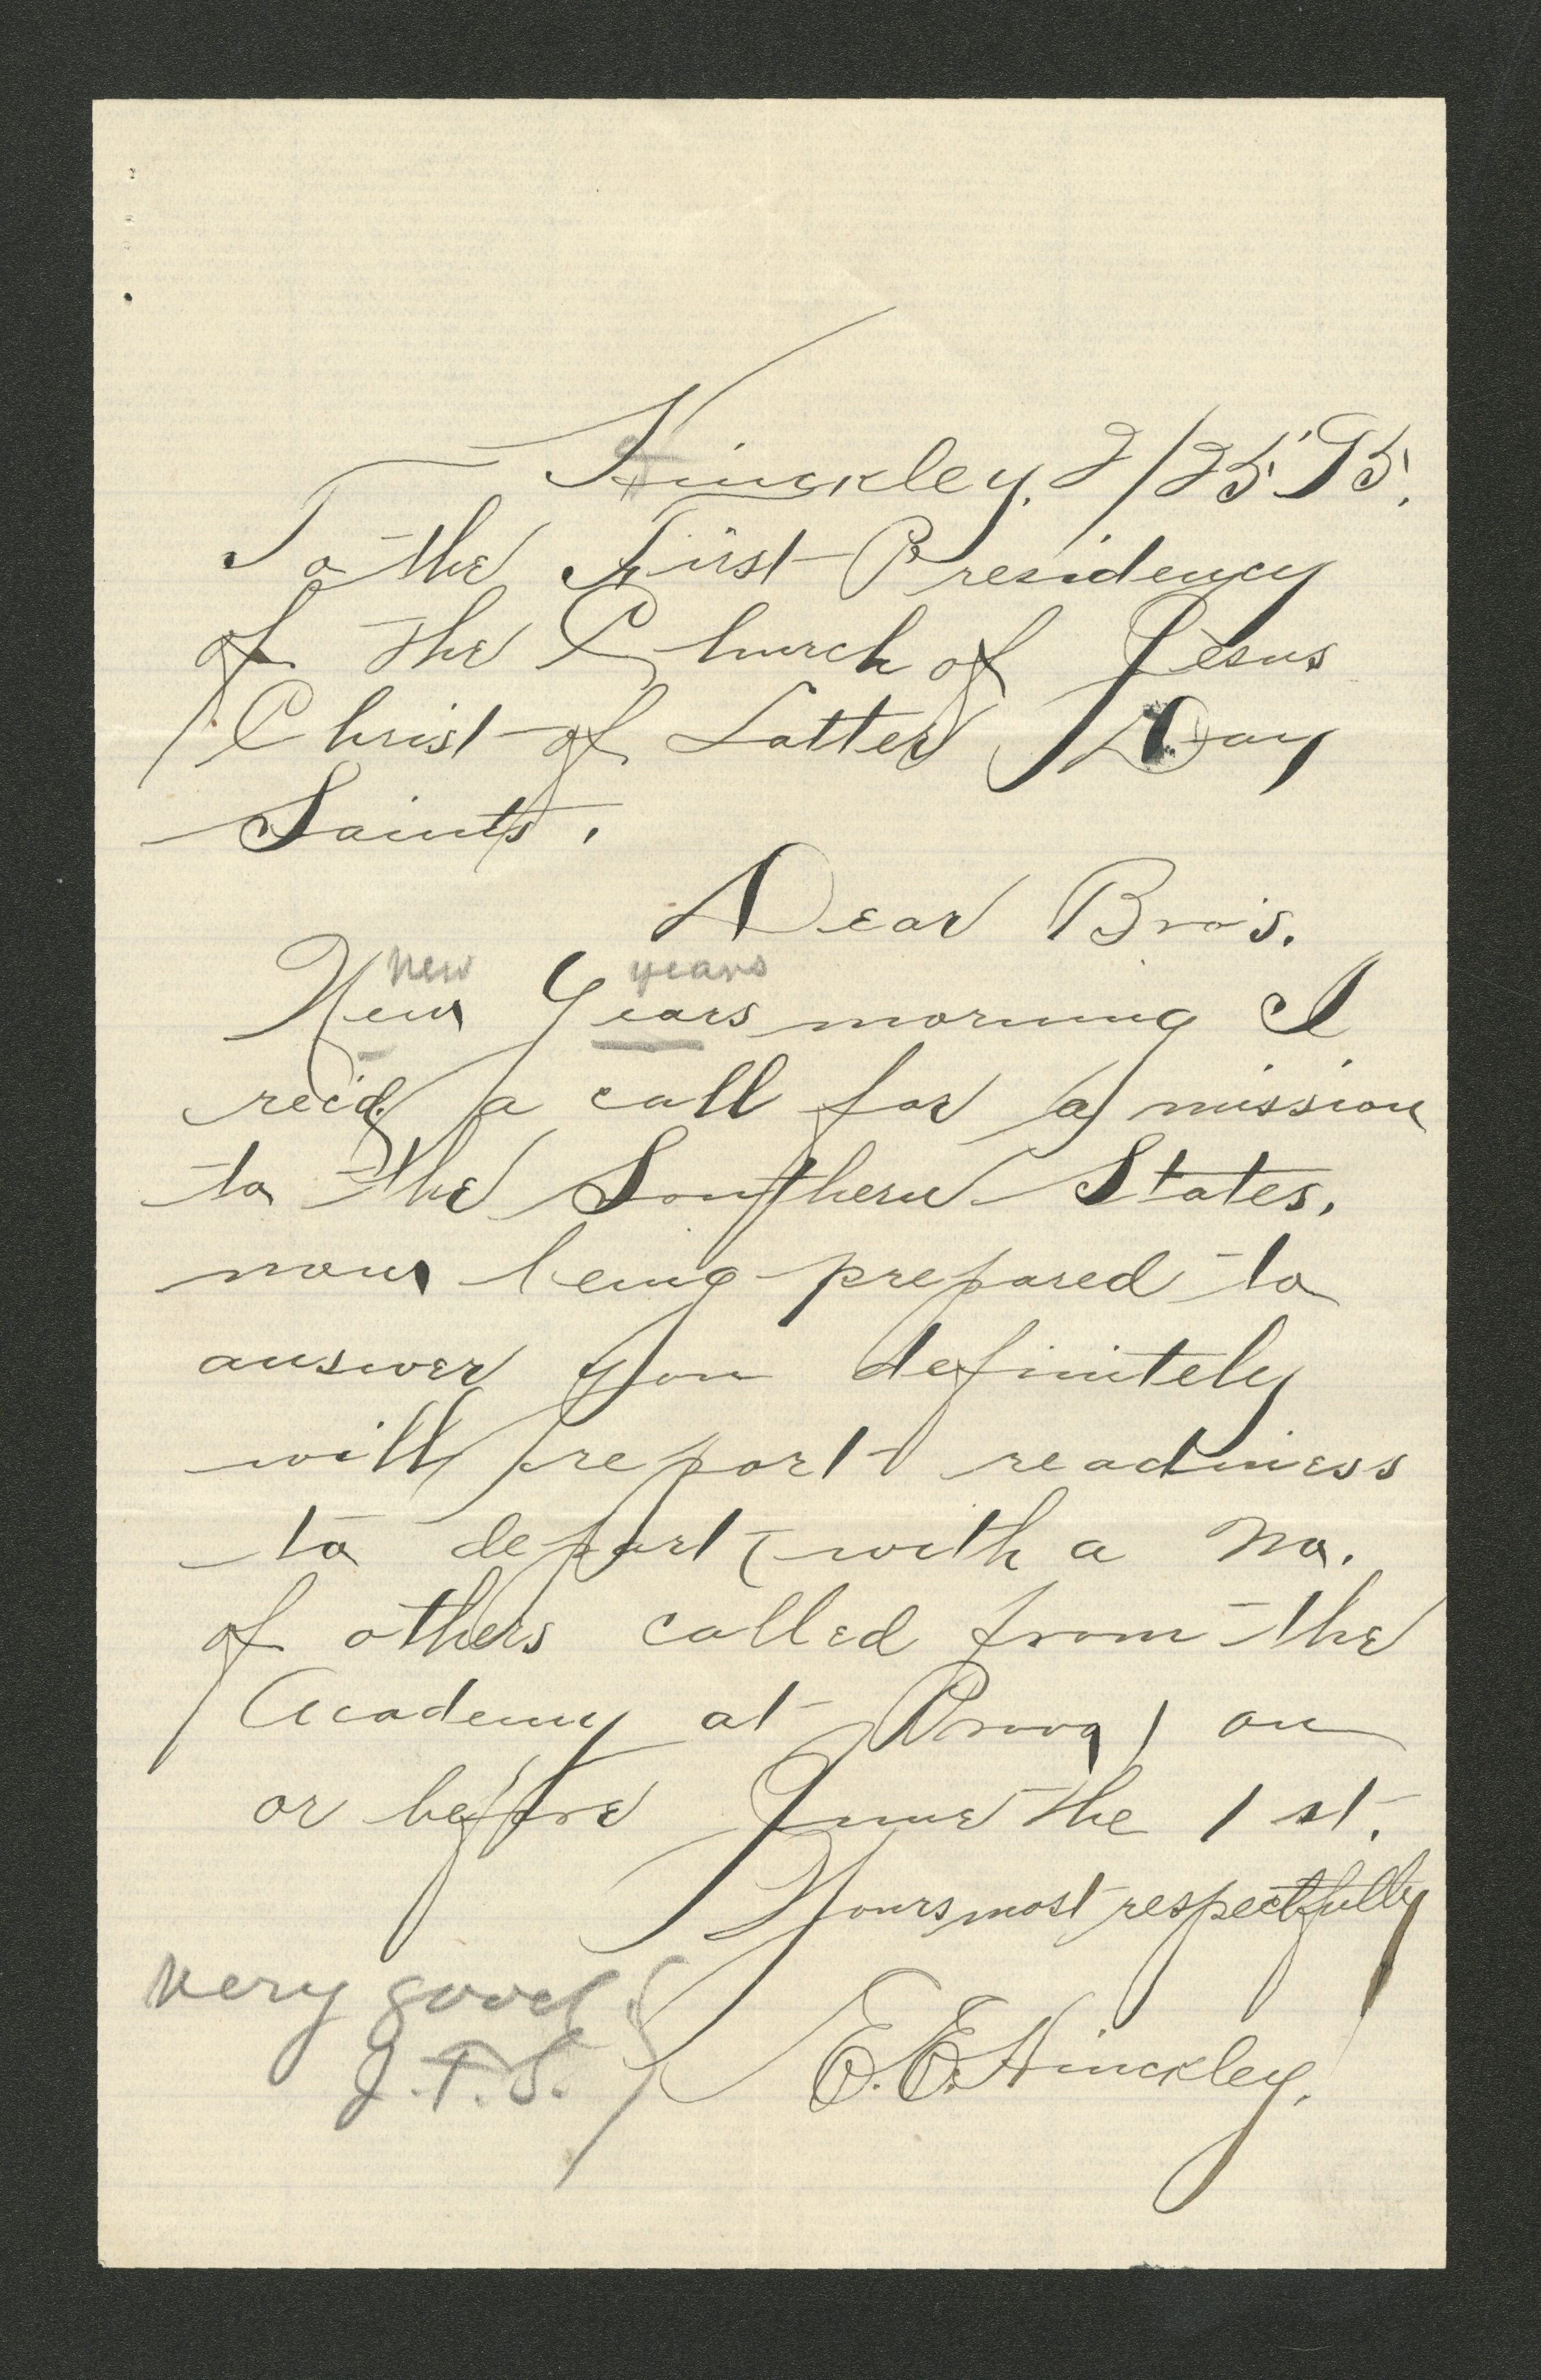 Hinckley, 2/25 '95.
To the First Presidency
of the Church of Jesus
Christ of Latter Day
Saints.
Dear Bro's.
new years
New Years morning I
rec'd. a call for a mission
to the Southern States.
now being prepared to
answer you definitely
will report readiness
to depart (with a No.
of others called from the
Academy at Provo) on
or before June the 1st.
Yours most respectfully
E. E. Hinckley.
very good
J. F. S.